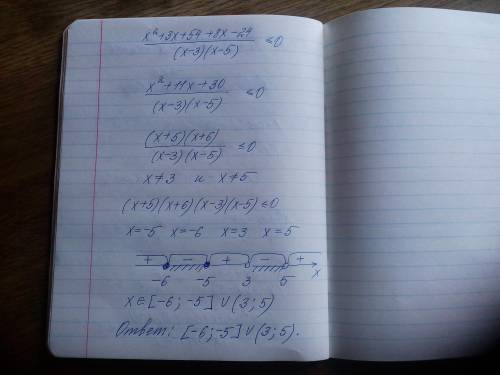 x²+3x+54+8x-24 / (x-3)(x-5) ≤0
x²+11x+30 / (x-3)(x-5) ≤0
(x+5)(x+6) / (x-3)(x-5) ≤0
x≠3 и x≠5
(x+5)(x+6)(x-3)(x-5)≤0
x=-5 x=-6 x=3 x=5
+ - + - +
-6 -5 3 5 x
x∈[-6;-5]∪(3;5)
Ответ: [-6;-5]∪(3;5).